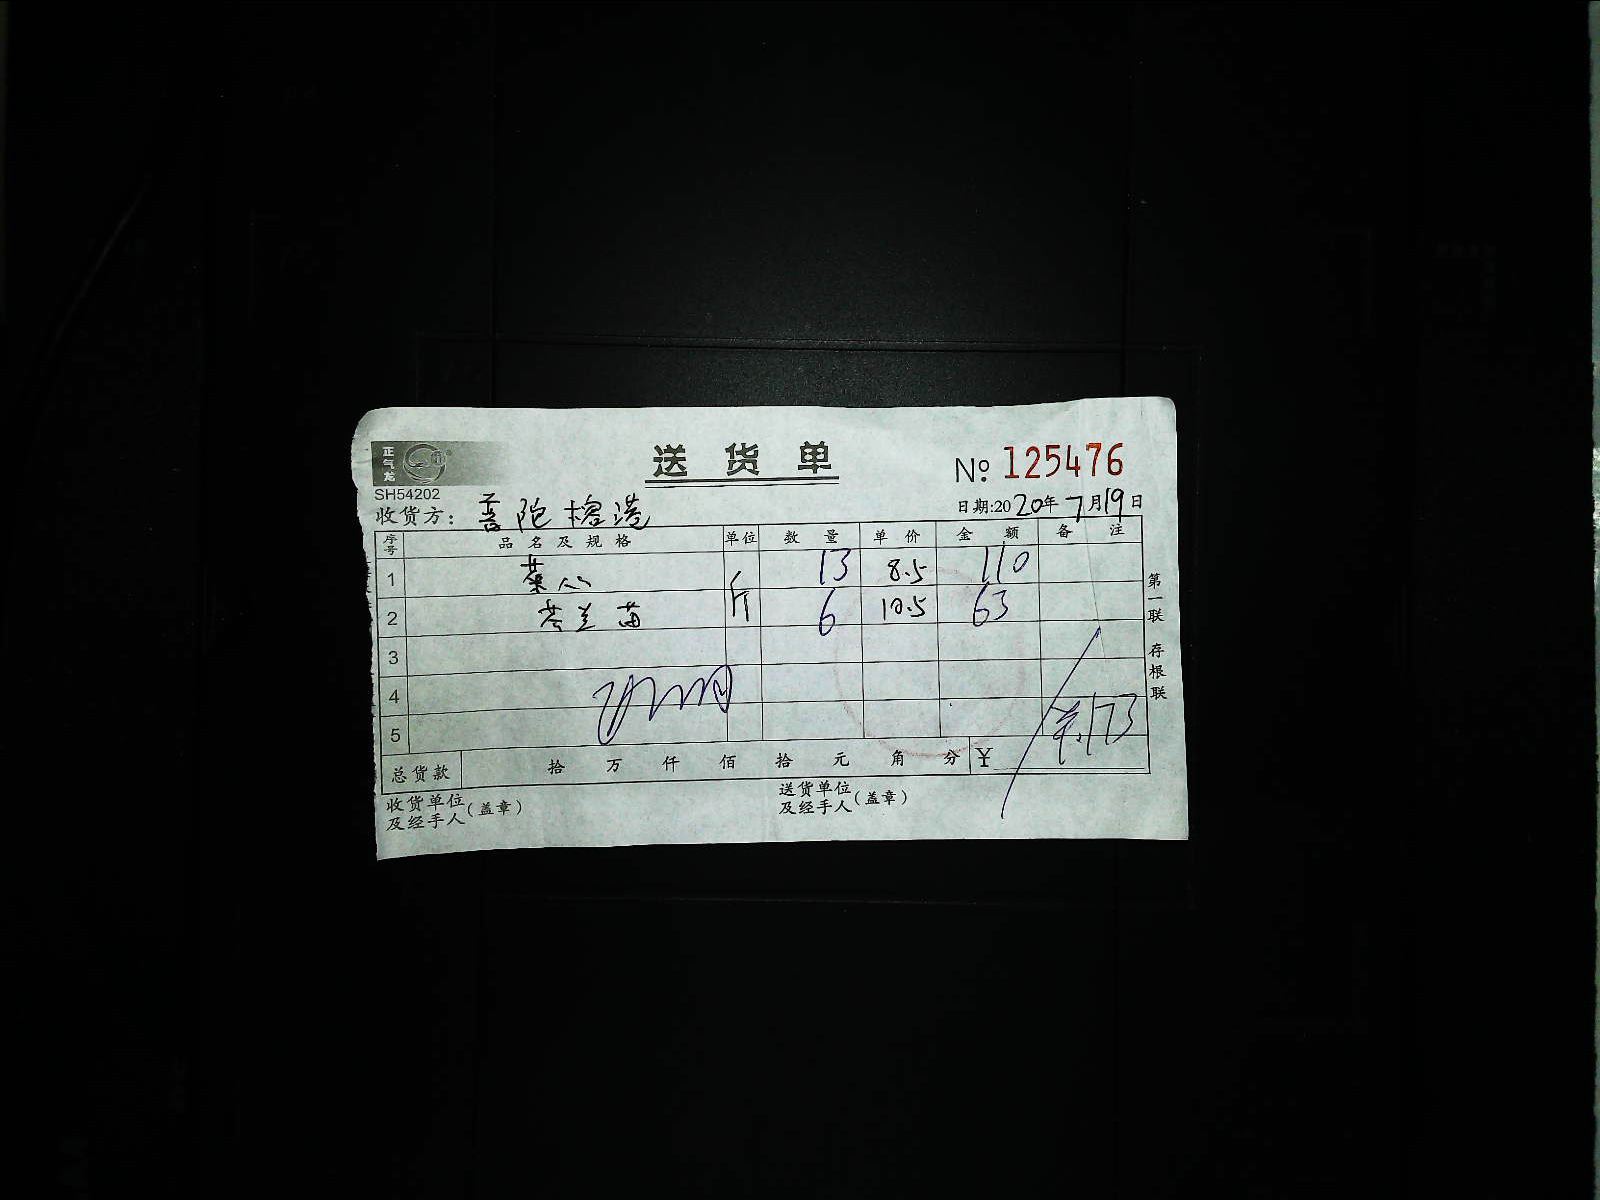 正气龙
送货单
No 125476
SH54202
收货方: 普陀榕港
日期:2020年7月19日
序号 品名及规格 单位 数量 单价 金额 备注
1 菜心 斤 13 8.5 110
2 芥兰苗 6 10.5 63
3
4
5
共.173
总货款 拾 万 仟 佰 拾 元 角 分 ¥
收货单位及经手人(盖章)
送货单位及经手人(盖章)
第一联 存根联